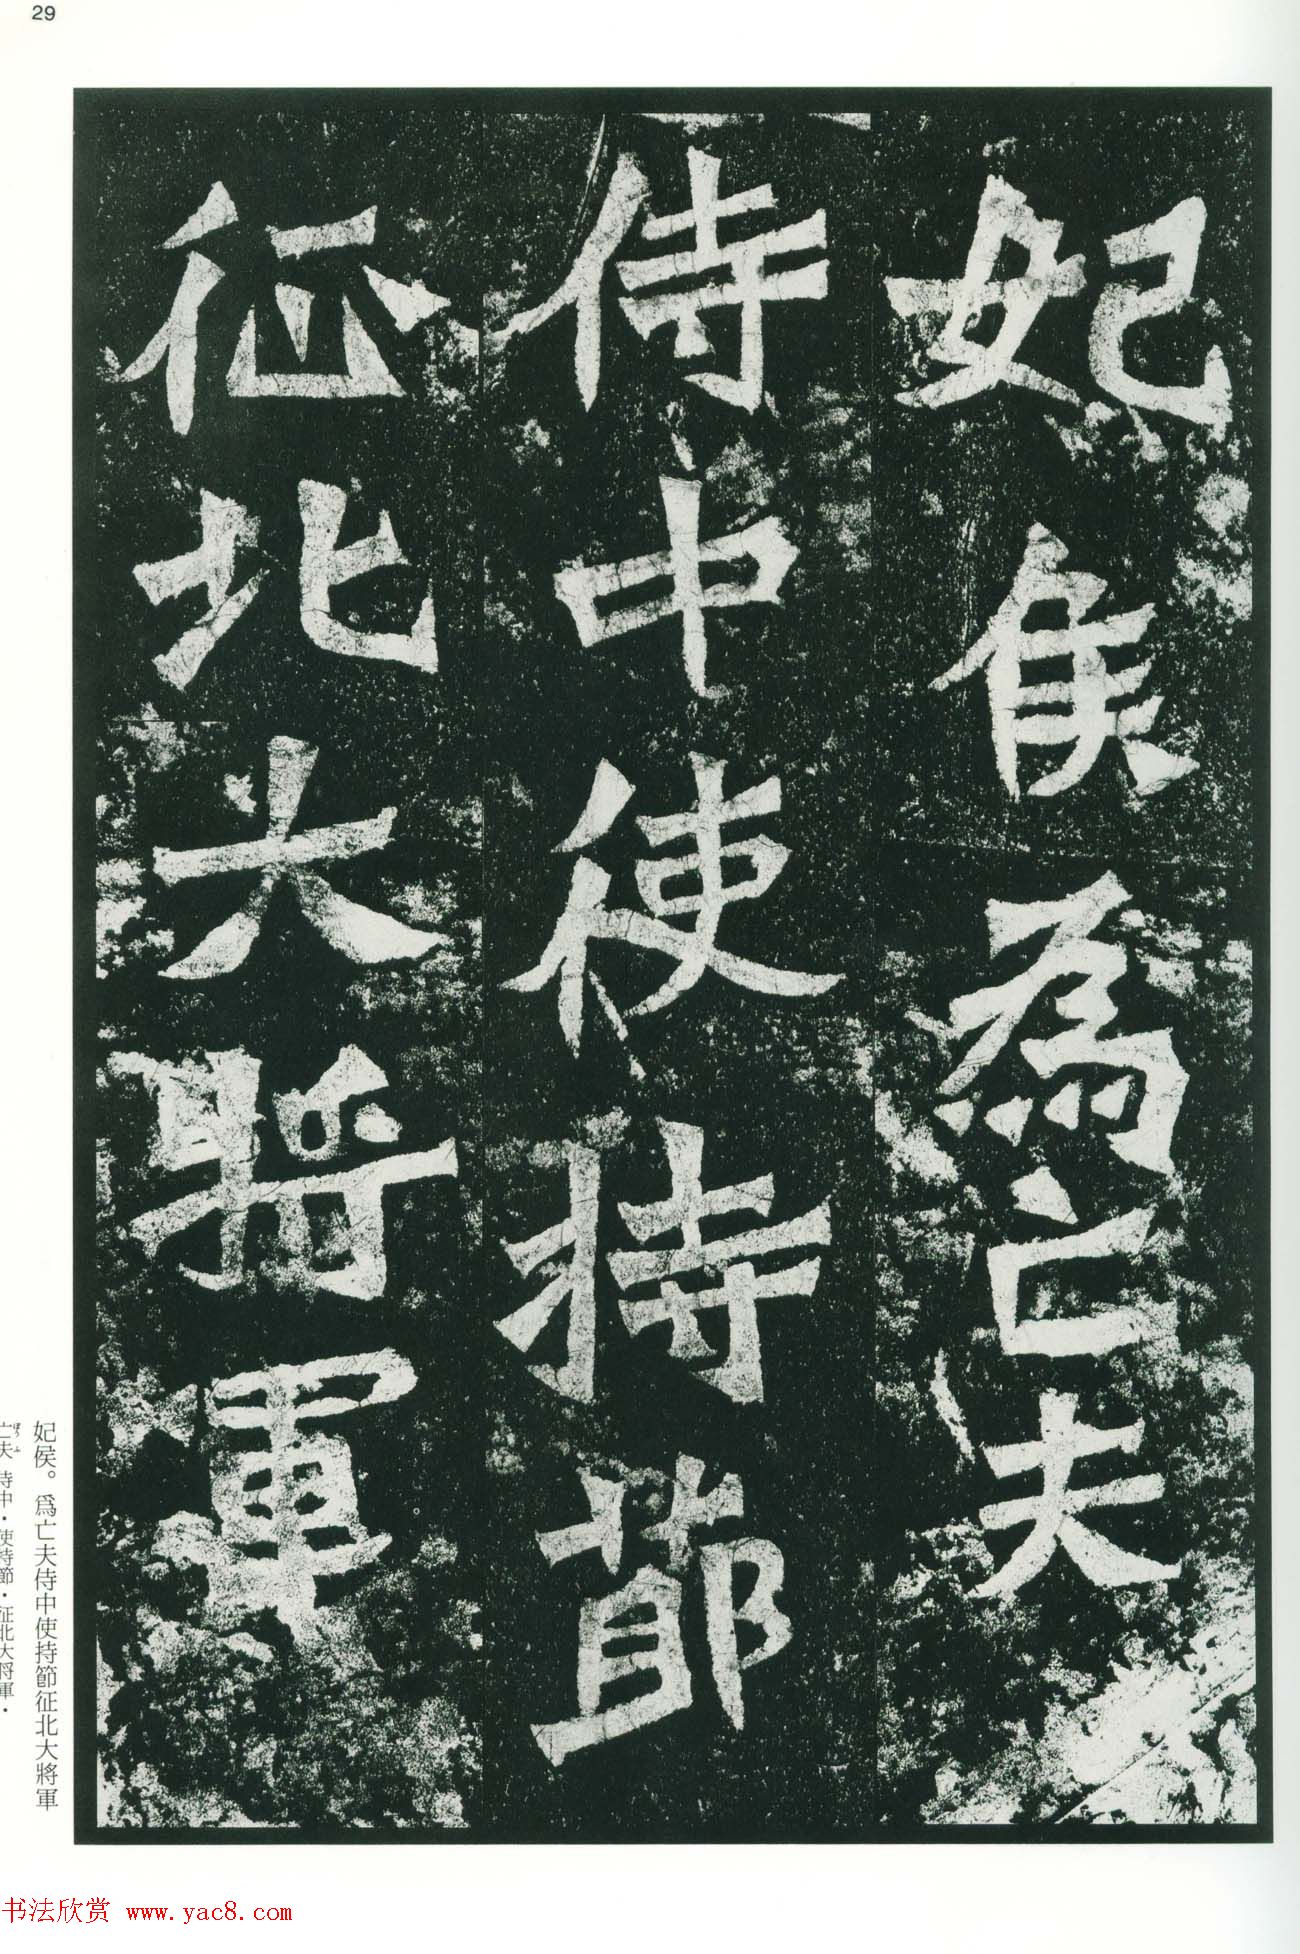 29
妃侯為亡夫
侍中使持節
征北大將軍
妃侯。爲亡夫侍中使持節征北大將軍
亡夫 侍中・使持節・征北大将軍・
书法欣赏 www.yac8.com